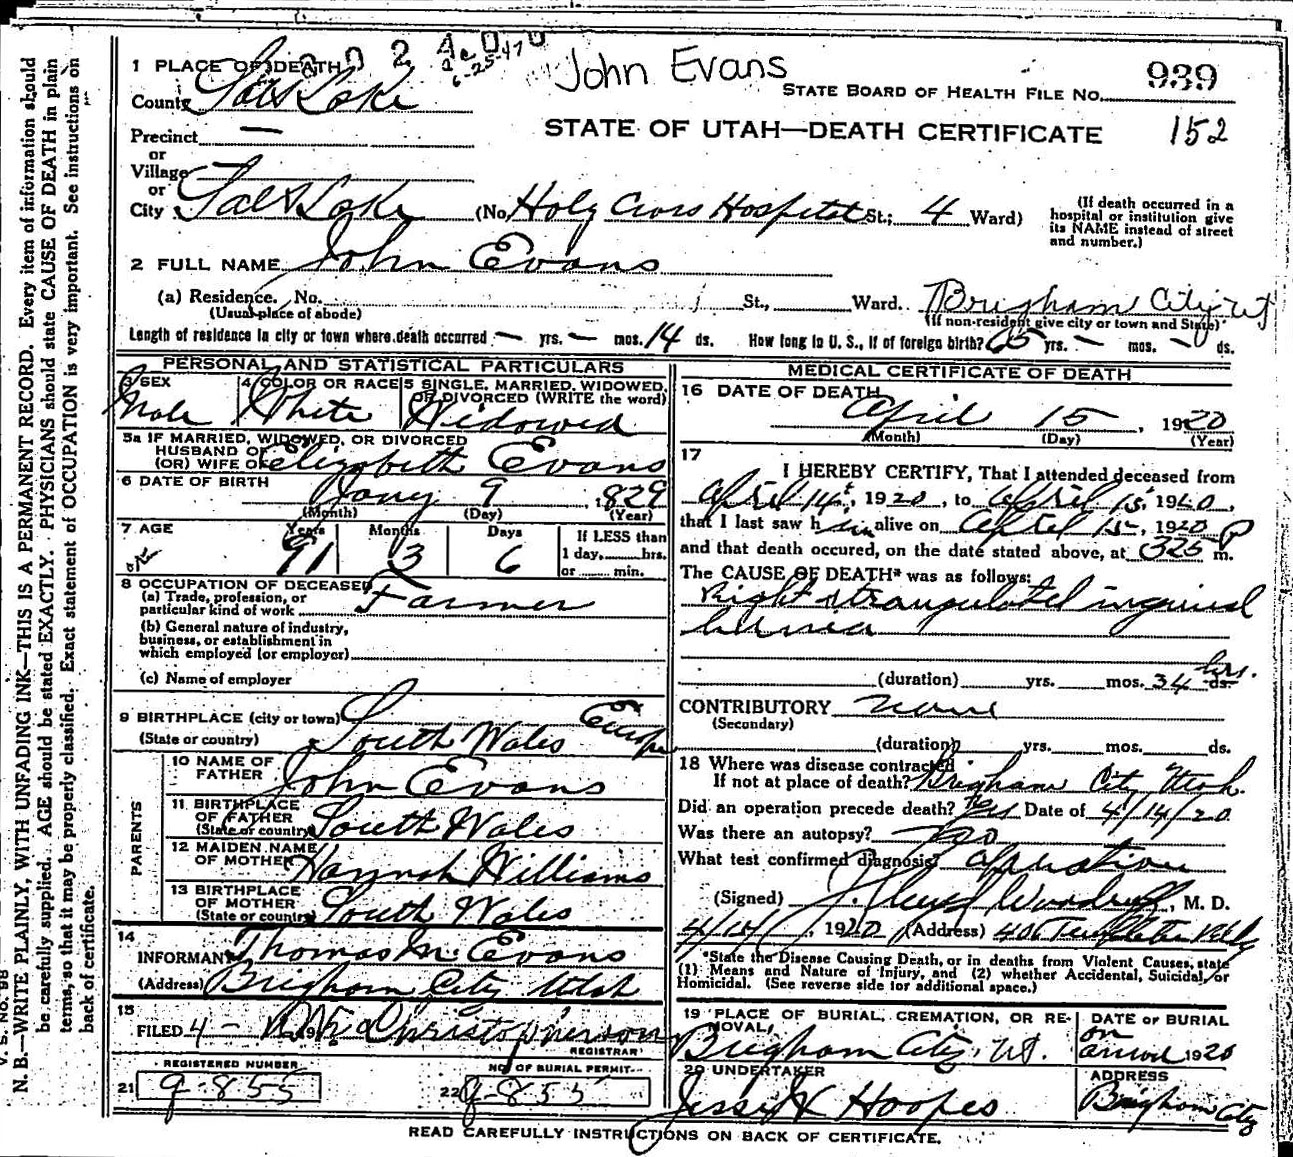 John Evans
6-25-47
939
1 PLACE OF DEATH
County Salt Lake
STATE BOARD OF HEALTH FILE No.
STATE OF UTAH—DEATH CERTIFICATE 152
Precinct —
or
Village
or
City Salt Lake (No. Holy Cross Hospital St.; 4 Ward)
(If death occurred in a
hospital or institution give
its NAME instead of street
and number.)
2 FULL NAME John Evans
(a) Residence. No. St., Ward. Brigham City Ut
(Usual place of abode) (If non-resident give city or town and State)
Length of residence in city or town where death occurred — yrs. — mos. 14 ds. How long in U. S., if of foreign birth? 65 yrs. — mos. — ds.
PERSONAL AND STATISTICAL PARTICULARS
3 SEX 4 COLOR OR RACE 5 SINGLE, MARRIED, WIDOWED,
OR DIVORCED (WRITE the word)
Male White Widowed
5a IF MARRIED, WIDOWED, OR DIVORCED
HUSBAND OF
(OR) WIFE OF Elizabeth Evans
6 DATE OF BIRTH Jany 9, 1829
(Month) (Day) (Year)
7 AGE Years Months Days If LESS than
91 3 6 1 day, hrs.
or min.
8 OCCUPATION OF DECEASED
(a) Trade, profession, or
particular kind of work Farmer
(b) General nature of industry,
business, or establishment in
which employed (or employer)
(c) Name of employer
9 BIRTHPLACE (city or town)
(State or country) South Wales Europe
PARENTS
10 NAME OF
FATHER John Evans
11 BIRTHPLACE
OF FATHER
(State or country) South Wales
12 MAIDEN NAME
OF MOTHER Hannah Williams
13 BIRTHPLACE
OF MOTHER
(State or country) South Wales
14
INFORMANT Thomas M. Evans
(Address) Brigham City Utah
15
FILED 4- 19 Christopherson
REGISTRAR
REGISTERED NUMBER NO. OF BURIAL PERMIT
21 9-855 22 9-855
MEDICAL CERTIFICATE OF DEATH
16 DATE OF DEATH
April 15, 1920
(Month) (Day) (Year)
17
I HEREBY CERTIFY, That I attended deceased from
April 14, 1920, to April 15, 1920,
that I last saw him alive on April 15, 1920
and that death occured, on the date stated above, at 325 P m.
The CAUSE OF DEATH* was as follows:
Right strangulated inguinal
hernia
(duration) yrs. mos. 34 ds. hrs.
CONTRIBUTORY none
(Secondary)
(duration) yrs. mos. ds.
18 Where was disease contracted
If not at place of death? Brigham City Utah.
Did an operation precede death? Yes Date of 4/14/20
Was there an autopsy? no
What test confirmed diagnosis? operation
(Signed) Woodruff, M. D.
1920 (Address) 406 Templeton Bldg
*State the Disease Causing Death, or in deaths from Violent Causes, state
(1) Means and Nature of Injury, and (2) whether Accidental, Suicidal, or
Homicidal. (See reverse side for additional space.)
19 PLACE OF BURIAL, CREMATION, OR RE-
MOVAL,
Brigham City, Ut.
DATE OF BURIAL
on
arrival 1920
20 UNDERTAKER
Jesse W Hoopes
ADDRESS
Brigham City
READ CAREFULLY INSTRUCTIONS ON BACK OF CERTIFICATE.
V. S. No. 98
N. B.—WRITE PLAINLY, WITH UNFADING INK—THIS IS A PERMANENT RECORD. Every item of information should
be carefully supplied. AGE should be stated EXACTLY. PHYSICIANS should state CAUSE OF DEATH in plain
terms, so that it may be properly classified. Exact statement of OCCUPATION is very important. See instructions on
back of certificate.